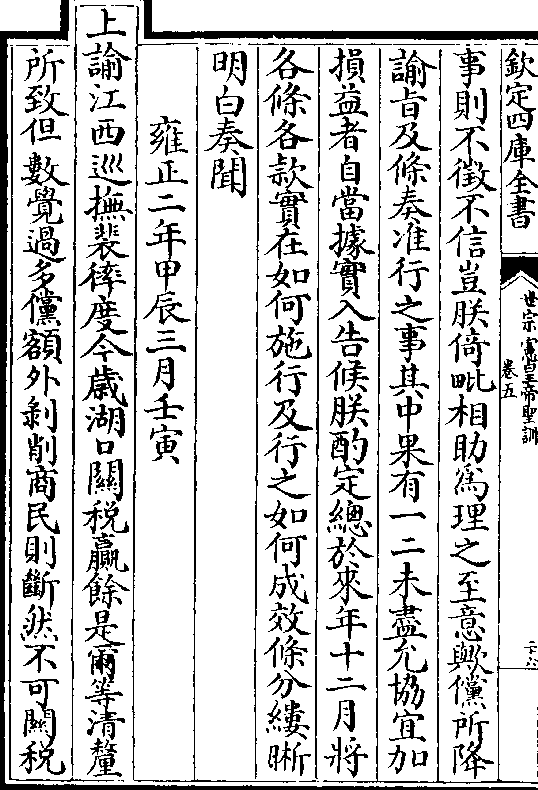 欽定四庫全書
世宗憲皇帝聖訓
卷五
二十六
事則不徵不信豈朕倚毗相助為理之至意歟儻所降
諭旨及條奏准行之事其中果有一二未盡允協宜加
損益者自當據實入告候朕酌定總於來年十二月將
各條各款實在如何施行及行之如何成效條分縷晰
明白奏聞
雍正二年甲辰三月壬寅
上諭江西巡撫裴𢕬度今歲湖口關稅贏餘是爾等清釐
所致但數覺過多儻額外剝削商民則斷然不可關稅